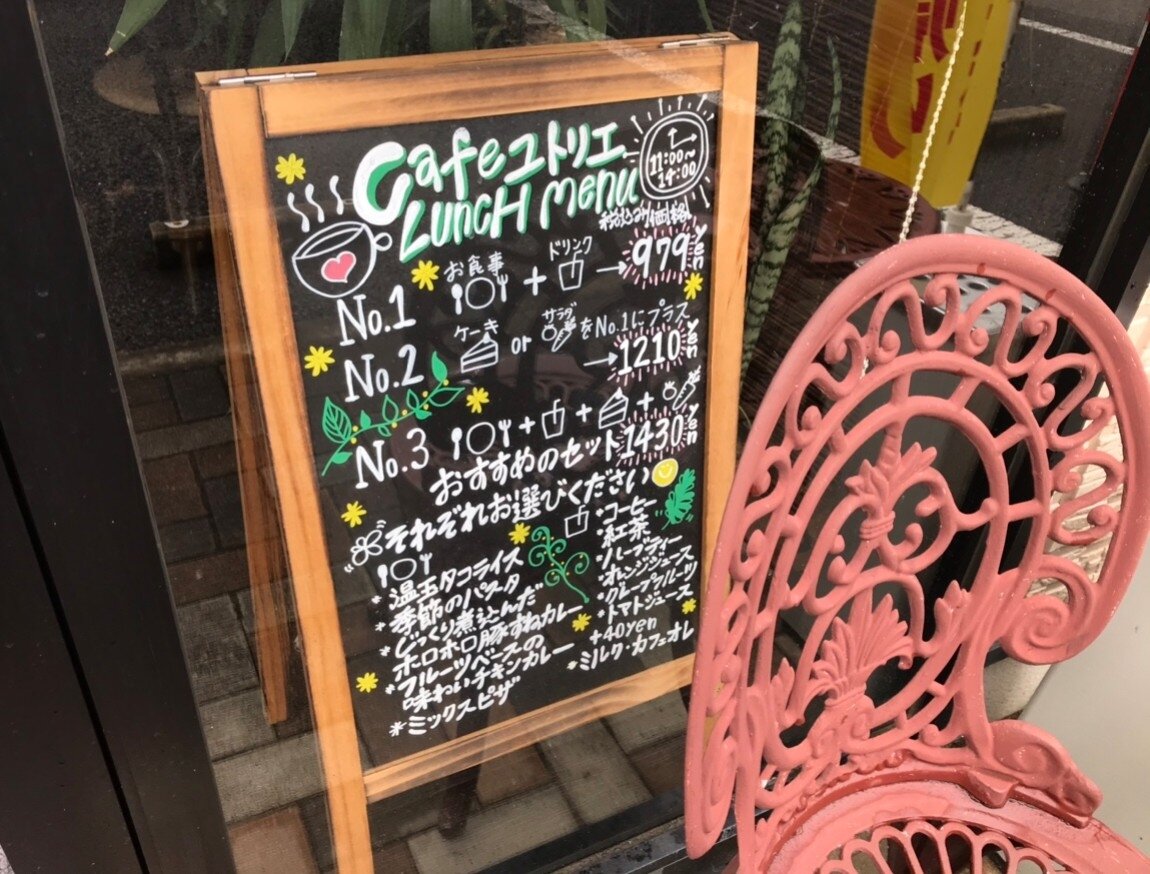 Cafe ユトリエ
LUNCH menu
11:00～
14:00
税込み価格
No.1 お食事 + ドリンク → 979 Yen
No.2 ケーキ or サラダ をNo.1にプラス
→ 1210 Yen
No.3 + + +
おすすめのセット 1430 Yen
それぞれお選びください
*温玉タコライス
*季節のパスタ
*じっくり煮込んだ
ホロホロ豚すねカレー
*フルーツベースの
味わいチキンカレー
*ミックスピザ
*コーヒー
*紅茶
*ハーブティー
*オレンジジュース
*グレープフルーツ
*トマトジュース
+40yen
*ミルク・カフェオレ